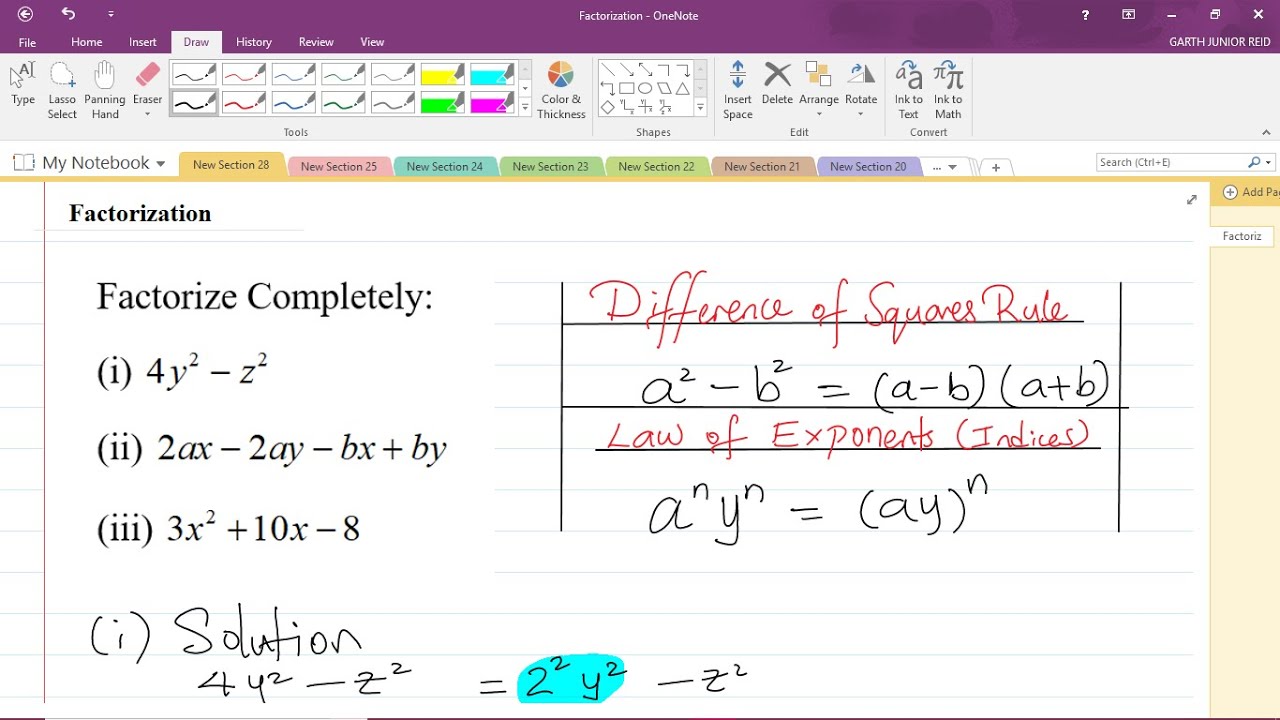 Factorization - OneNote
?
GARTH JUNIOR REID
File Home Insert Draw History Review View
Type
Lasso Select
Panning Hand
Eraser
Color & Thickness
Insert Space
Delete
Arrange
Rotate
Ink to Text
Ink to Math
Tools
Shapes
Edit
Convert
My Notebook
New Section 28
New Section 25
New Section 24
New Section 23
New Section 22
New Section 21
New Section 20
...
+
Search (Ctrl+E)
Add Pa
Factoriz
Factorization
Factorize Completely:
(i) 4y² − z²
(ii) 2ax − 2ay − bx + by
(iii) 3x² + 10x − 8
Difference of Squares Rule
a² − b² = (a−b)(a+b)
Law of Exponents (Indices)
aⁿyⁿ = (ay)ⁿ
(i) Solution
4y² − z² = 2² y² − z²